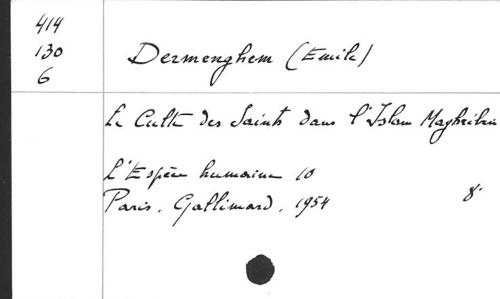 414
130
6
Dermenghem (Emile)
Le Culte des Saints dans l'Islam Maghribin
L'Espèce humaine 10
Paris. Gallimard. 1954
8°